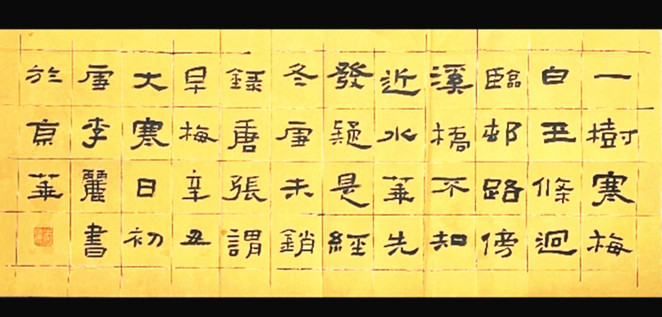 一樹寒梅
白玉條迴
臨邨路傍
溪橋不知
近水華先
發疑是經
冬雪未銷
録唐張謂
早梅辛丑
大寒日初
雪李麗書
於京華